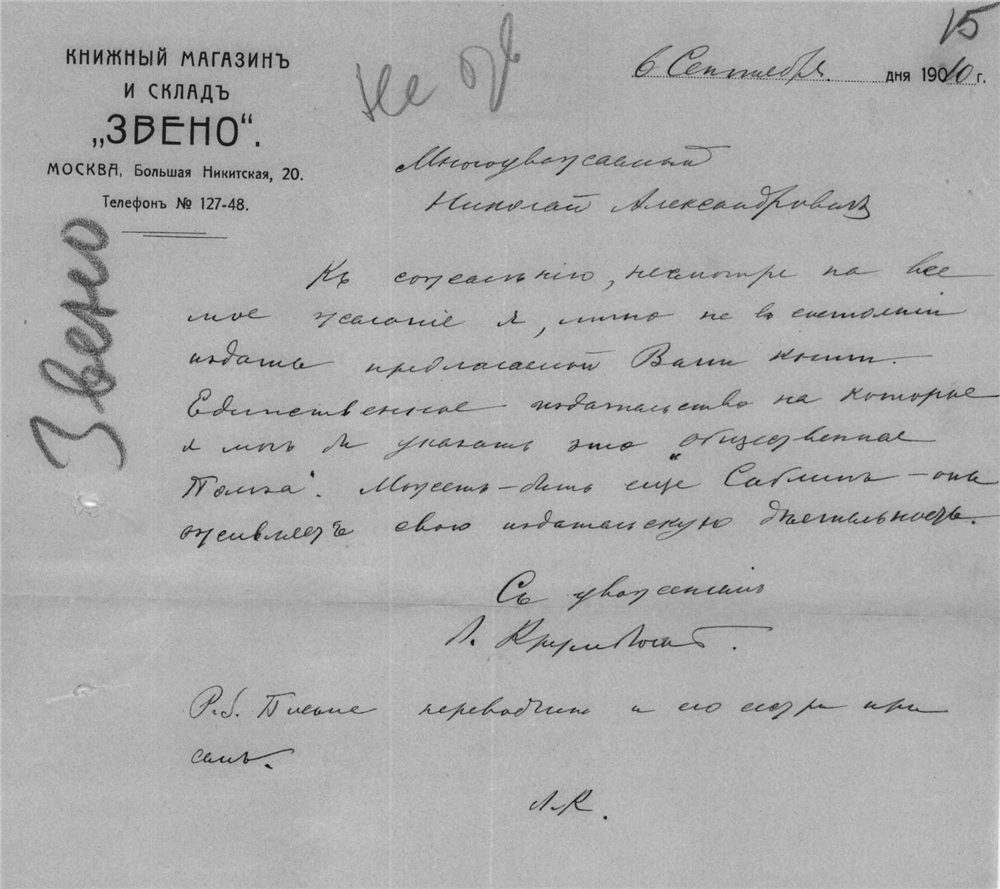 15
КНИЖНЫЙ МАГАЗИНЪ
И СКЛАДЪ
„ЗВЕНО“.
МОСКВА, Большая Никитская, 20.
Телефонъ № 127-48.
Не
6 Сентября дня 1910 г.
Звено
Многоуважаемый
Николай Александровичъ
Къ сожалѣнію, несмотря на все
мое желаніе я, лично не въ состояніи
издать предлагаемой Вами книги.
Единственное издательство на которое
я могъ бы указать это „Общественная
Польза“. Можетъ-быть еще Саблинъ – онъ
оживляетъ свою издательскую дѣятельность.
Съ уваженіемъ
Л.
P.S. Письмо переводчика и его сестры при
семъ.
Л.К.